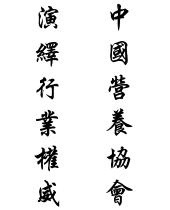 中國營養協會
演繹行業權威